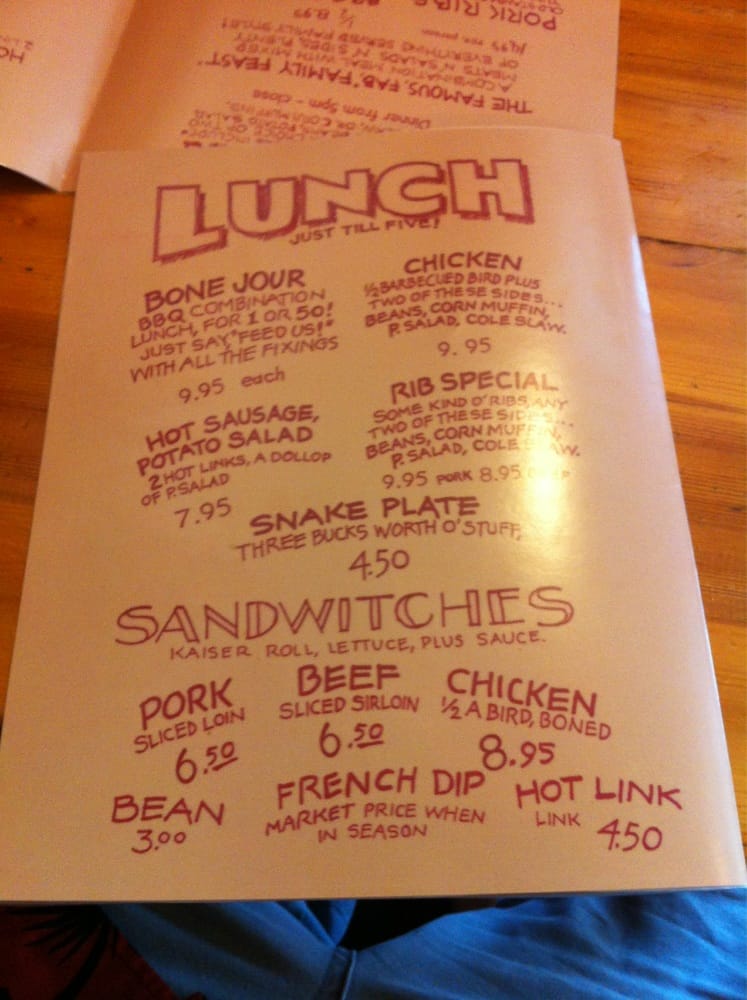 LUNCH
JUST TILL FIVE!
BONE JOUR
BBQ COMBINATION
LUNCH, FOR 1 OR 50!
JUST SAY, "FEED US!"
WITH ALL THE FIXINGS
9.95 each
CHICKEN
½ BARBECUED BIRD PLUS
TWO OF THESE SIDES...
BEANS, CORN MUFFIN,
P. SALAD, COLE SLAW.
9.95
HOT SAUSAGE,
POTATO SALAD
2 HOT LINKS, A DOLLOP
OF P. SALAD
7.95
RIB SPECIAL
SOME KIND O' RIBS, ANY
TWO OF THESE SIDES...
BEANS, CORN MUFFIN,
P. SALAD, COLE SLAW.
9.95 PORK 8.95
SNAKE PLATE
THREE BUCKS WORTH O' STUFF,
4.50
SANDWITCHES
KAISER ROLL, LETTUCE, PLUS SAUCE.
PORK
SLICED LOIN
6.50
BEEF
SLICED SIRLOIN
6.50
CHICKEN
½ A BIRD, BONED
8.95
BEAN
3.00
FRENCH DIP
MARKET PRICE WHEN
IN SEASON
HOT LINK
LINK 4.50
Dinner from 5pm - close
THE FAMOUS, FAB, FAMILY FEAST
A COMBINATION MEAL WITH MIXED
MEATS 'N' SALADS 'N' SIDES, PLENTY
OF EVERYTHING SERVED FAMILY STYLE!
14.95 per person
PORK RIBS
½ 8.99